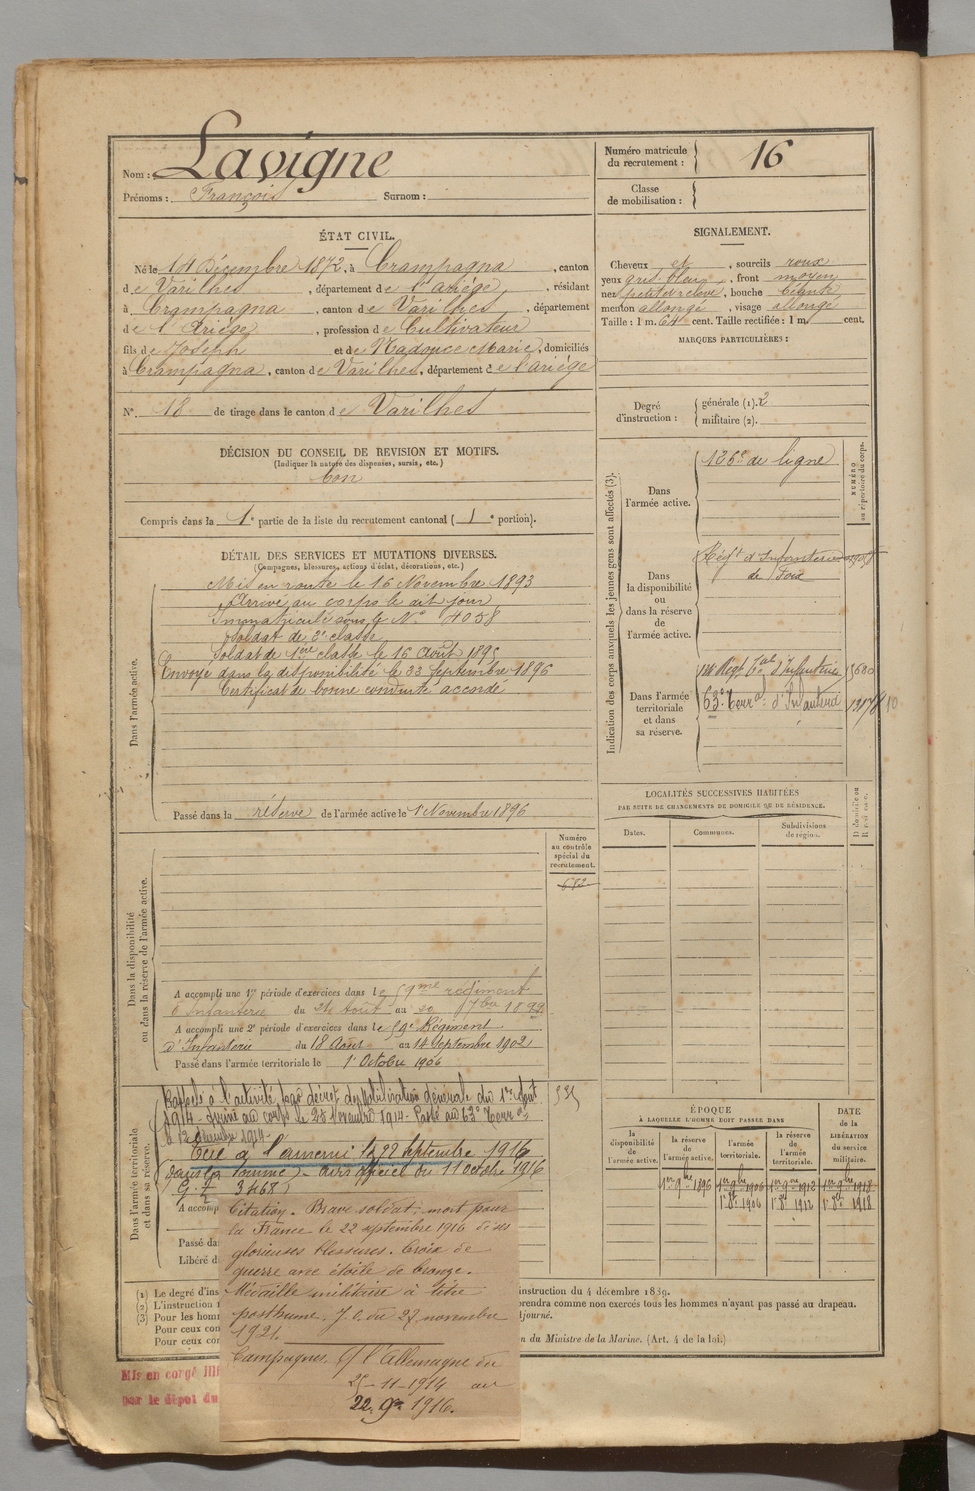 Nom : Lavigne
Prénoms : François Surnom :
Numéro matricule du recrutement : 16
Classe de mobilisation :
ÉTAT CIVIL.
Né le 14 Décembre 1872, à Crampagna, canton
de Varilhes, département de l'Ariège, résidant
à Crampagna, canton de Varilhes, département
de l'Ariège, profession de Cultivateur
fils de Joseph et de Nadouce Marie, domiciliés
à Crampagna, canton de Varilhes, département de l'Ariège
N° 18 de tirage dans le canton de Varilhes
SIGNALEMENT.
Cheveux et, sourcils roux
yeux gris bleu, front moyen
nez petit et relevé, bouche béante
menton allongé, visage allongé
Taille : 1 m. 64 cent. Taille rectifiée : 1 m. cent.
MARQUES PARTICULIÈRES :
Degré d'instruction : générale (1). 2
militaire (2).
DÉCISION DU CONSEIL DE REVISION ET MOTIFS.
(Indiquer la nature des dispenses, sursis, etc.)
bon
Compris dans la 1e partie de la liste du recrutement cantonal ( 1e portion).
DÉTAIL DES SERVICES ET MUTATIONS DIVERSES.
(Campagnes, blessures, actions d'éclat, décorations, etc.)
Dans l'armée active.
Mis en route le 16 Novembre 1893
Arrivé au corps le dit jour
Immatriculé sous le N° 4058
Soldat de 2e classe
Soldat de 1ère classe le 16 Août 1895
Envoyé dans la disponibilité le 23 Septembre 1896
Certificat de bonne conduite accordé
Passé dans la réserve de l'armée active le 1 Novembre 1896
Indication des corps auxquels les jeunes gens sont affectés (3).
NUMÉRO au répertoire du corps.
Dans l'armée active.
126e de ligne
Dans la disponibilité ou dans la réserve de l'armée active.
Régt d'Infanterie
de Foix
Dans l'armée territoriale et dans sa réserve.
Régt Tal d'Infanterie 5680
63e Terral d'Infanterie
LOCALITÉS SUCCESSIVES HABITÉES
PAR SUITE DE CHANGEMENTS DE DOMICILE OU DE RÉSIDENCE.
Dates. Communes. Subdivisions de région. D domicile ou R résidence.
Numéro au contrôle spécial du recrutement.
682
Dans la disponibilité ou dans la réserve de l'armée active.
A accompli une 1re période d'exercices dans le 59me régiment
d'Infanterie du 24 Août au 20 7bre 1899
A accompli une 2e période d'exercices dans le 59e Régiment
d'Infanterie du 18 Août au 14 Septembre 1902
Passé dans l'armée territoriale le 1 Octobre 1906
Dans l'armée territoriale et dans sa réserve.
Rappelé à l'activité par décret de Mobilisation Générale du 1er Août
1914 - Arrivé au corps le 25 Novembre 1914 - Passé au 63e Terral
le 12 décembre 1914 -
Tué à l'ennemi le 22 Septembre 1916
(dans la Somme) - avis officiel du 11 octobre 1916
535
A accomp
Passé da
Libéré d
ÉPOQUE
À LAQUELLE L'HOMME DOIT PASSER DANS
la disponibilité de l'armée active. la réserve de l'armée active. l'armée territoriale. la réserve de l'armée territoriale.
DATE de la LIBÉRATION du service militaire.
1er 9bre 1896 1er 9bre 1906 1er 9bre 1912 1er 9bre 1918
1er 8bre 1906 1er 8bre 1912 1er 8bre 1918
Citation. Brave soldat; mort pour
la France le 22 septembre 1916 de ses
glorieuses blessures. Croix de
guerre avec étoile de bronze.
Médaille militaire à titre
posthume. J.O. du 27 novembre
1921.
Campagnes. C/ l'Allemagne du
25-11-1914 au
22. 9re 1916.
(1) Le degré d'ins
instruction du 4 décembre 1889.
(2) L'instruction
prendra comme non exercés tous les hommes n'ayant pas passé au drapeau.
(3) Pour les homm
ajourné.
Pour ceux con
Pour ceux con
on du Ministre de la Marine. (Art. 4 de la loi.)
Mis en congé illi
par le dépôt du